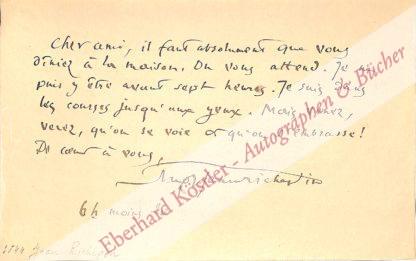 Cher ami, il faut absolument que vous
dîniez à la maison. On vous attend. Je ne
puis y être avant sept heures. Je suis dans
les courses jusqu'aux yeux. Mais venez,
venez, qu'on se voie et qu'on s'embrasse!
De cœur à vous,
6h moins
Jean Richepin
Eberhard Köstler - Autographen & Bücher